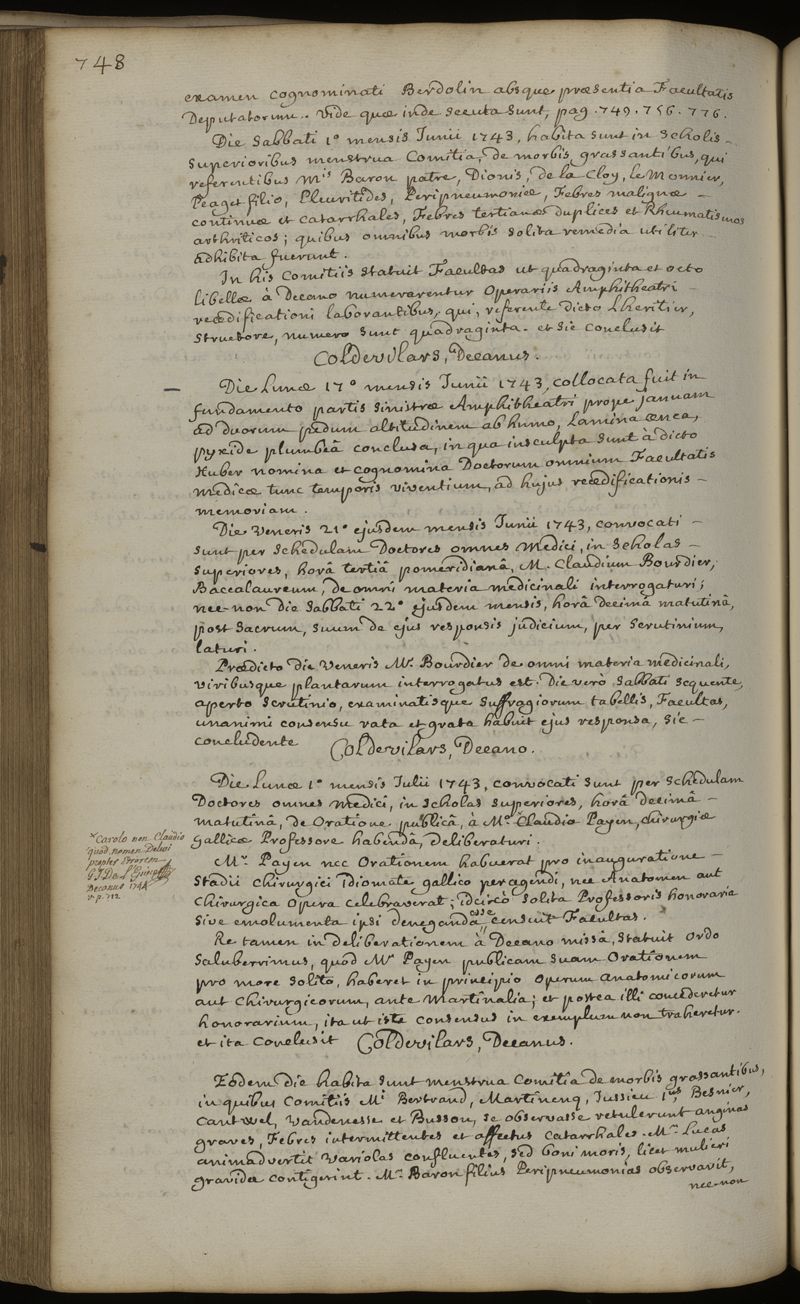 748
examen cognominati Berdolin absque præsentia Facultatis
Deputatorum. Vide quæ inde secuta sunt, pag. 749. 756. 776.
Die Sabbati 1ª mensis Junii 1743, habita sunt in Scholis
Superioribus menstrua Comitia, de morbis grassantibus, qui
referentibus Mis Baron patre, Dionis, De la Cloy, le Monnier,
Peaget filio, Pleuritides, Peripneumoniæ, Febres malignæ –
continuæ et catarrhales, Febres tertianæ duplices et Rheumatismos
arthriticos; quibus omnibus morbis solita remedia utiliter
adhibita fuerunt.
In his Comitiis statuit Facultas ut quadraginta et octo
libellæ à Decano numerarentur Operariis Amphitheatri
reædificationi laborantibus, qui, referente dicto Lheritier,
Structore, numero sunt quadraginta. et sic conclusit
Coldevilars, Decanus.
– Die Lunæ 17º mensis Junii 1743, collocata fuit in
fundamento partis sinistræ Amphitheatri prope januam
ad duorum pedum altitudinem ab humo, Lamina ænea,
pyxide plumbeâ conclusa, in qua insculpta sunt à dicto
Huber nomina et cognomina Doctorum omnium Facultatis
medicæ tunc temporis viventium, ad hujus reædificationis –
memoriam.
Die Veneris 21º ejusdem mensis Junii 1743, convocati –
sunt per Schedulam Doctores omnes Medici, in Scholas –
Superiores, horâ tertiâ pomeridianâ, M. Claudium Bourdier,
Baccalaureum, de omni materia medicinali interrogaturi;
nec-non die Sabbati 22º ejusdem mensis, horâ decimâ matutinâ,
post Sacrum, suum de ejus responsis judicium, per Scrutinium,
laturi.
Prædicto die Veneris Mr. Bourdier de omni materia medicinali,
viribusque plantarum interrogatus est. Die vero Sabbati sequente,
aperto Scrutinio, examinatisque Suffragiorum tabellis, Facultas,
unanimi consensu rata et grata habuit ejus responsa, sic –
concludente Coldevilars, Decano.
Die Lunæ 1ª mensis Julii 1743, convocati sunt per Schedulam
Doctores omnes Medici, in Scholas superiores, horâ decimâ –
matutinâ, de Oratione publicâ, à Mº. Claudio Payen, chirurgiæ
gallicæ Professore habendâ, deliberaturi.
* Carolo non Claudio
quod nomen Deleri
propter Errorem
Decanus 1744
v. p. 712
Mr. Payen nec Orationem habuerat pro inauguratione –
Stadii chirurgici Idiomate gallico peragendi, nec Anatomen aut
Chirurgica Opera celebraverat; idcirco solita Professoris honoraria
sive emolumenta ipsi deneganda esse censuit Facultas.
Re tamen in deliberationem à Decano missâ, statuit Ordo
Saluberrimus, quod Mr Payen publicam suam Orationem
pro more solito, haberet in principio operum anatomicorum
aut Chirurgicorum, ante Martinalia; et postea illi concederetur
honorarium, ita ut iste consensus in exemplum non traheretur.
et ita conclusit Coldevilars, Decanus.
Eodem die habita sunt menstrua Comitia de morbis grassantibus,
in quibus Comitiis Mi Bertrand, Martinenq, Jussieu 1us, Besnier,
Cantwel, Vandenesse et Busson, se observasse retulerunt anginas
graves, Febres intermittentes et affectus catarrhales. Mr. Lucas
animadvertit Variolas confluentes, sed boni moris, licet mulieri
gravidæ contigerint. Mr. Baron filius Peripneumonias observavit,
nec-non